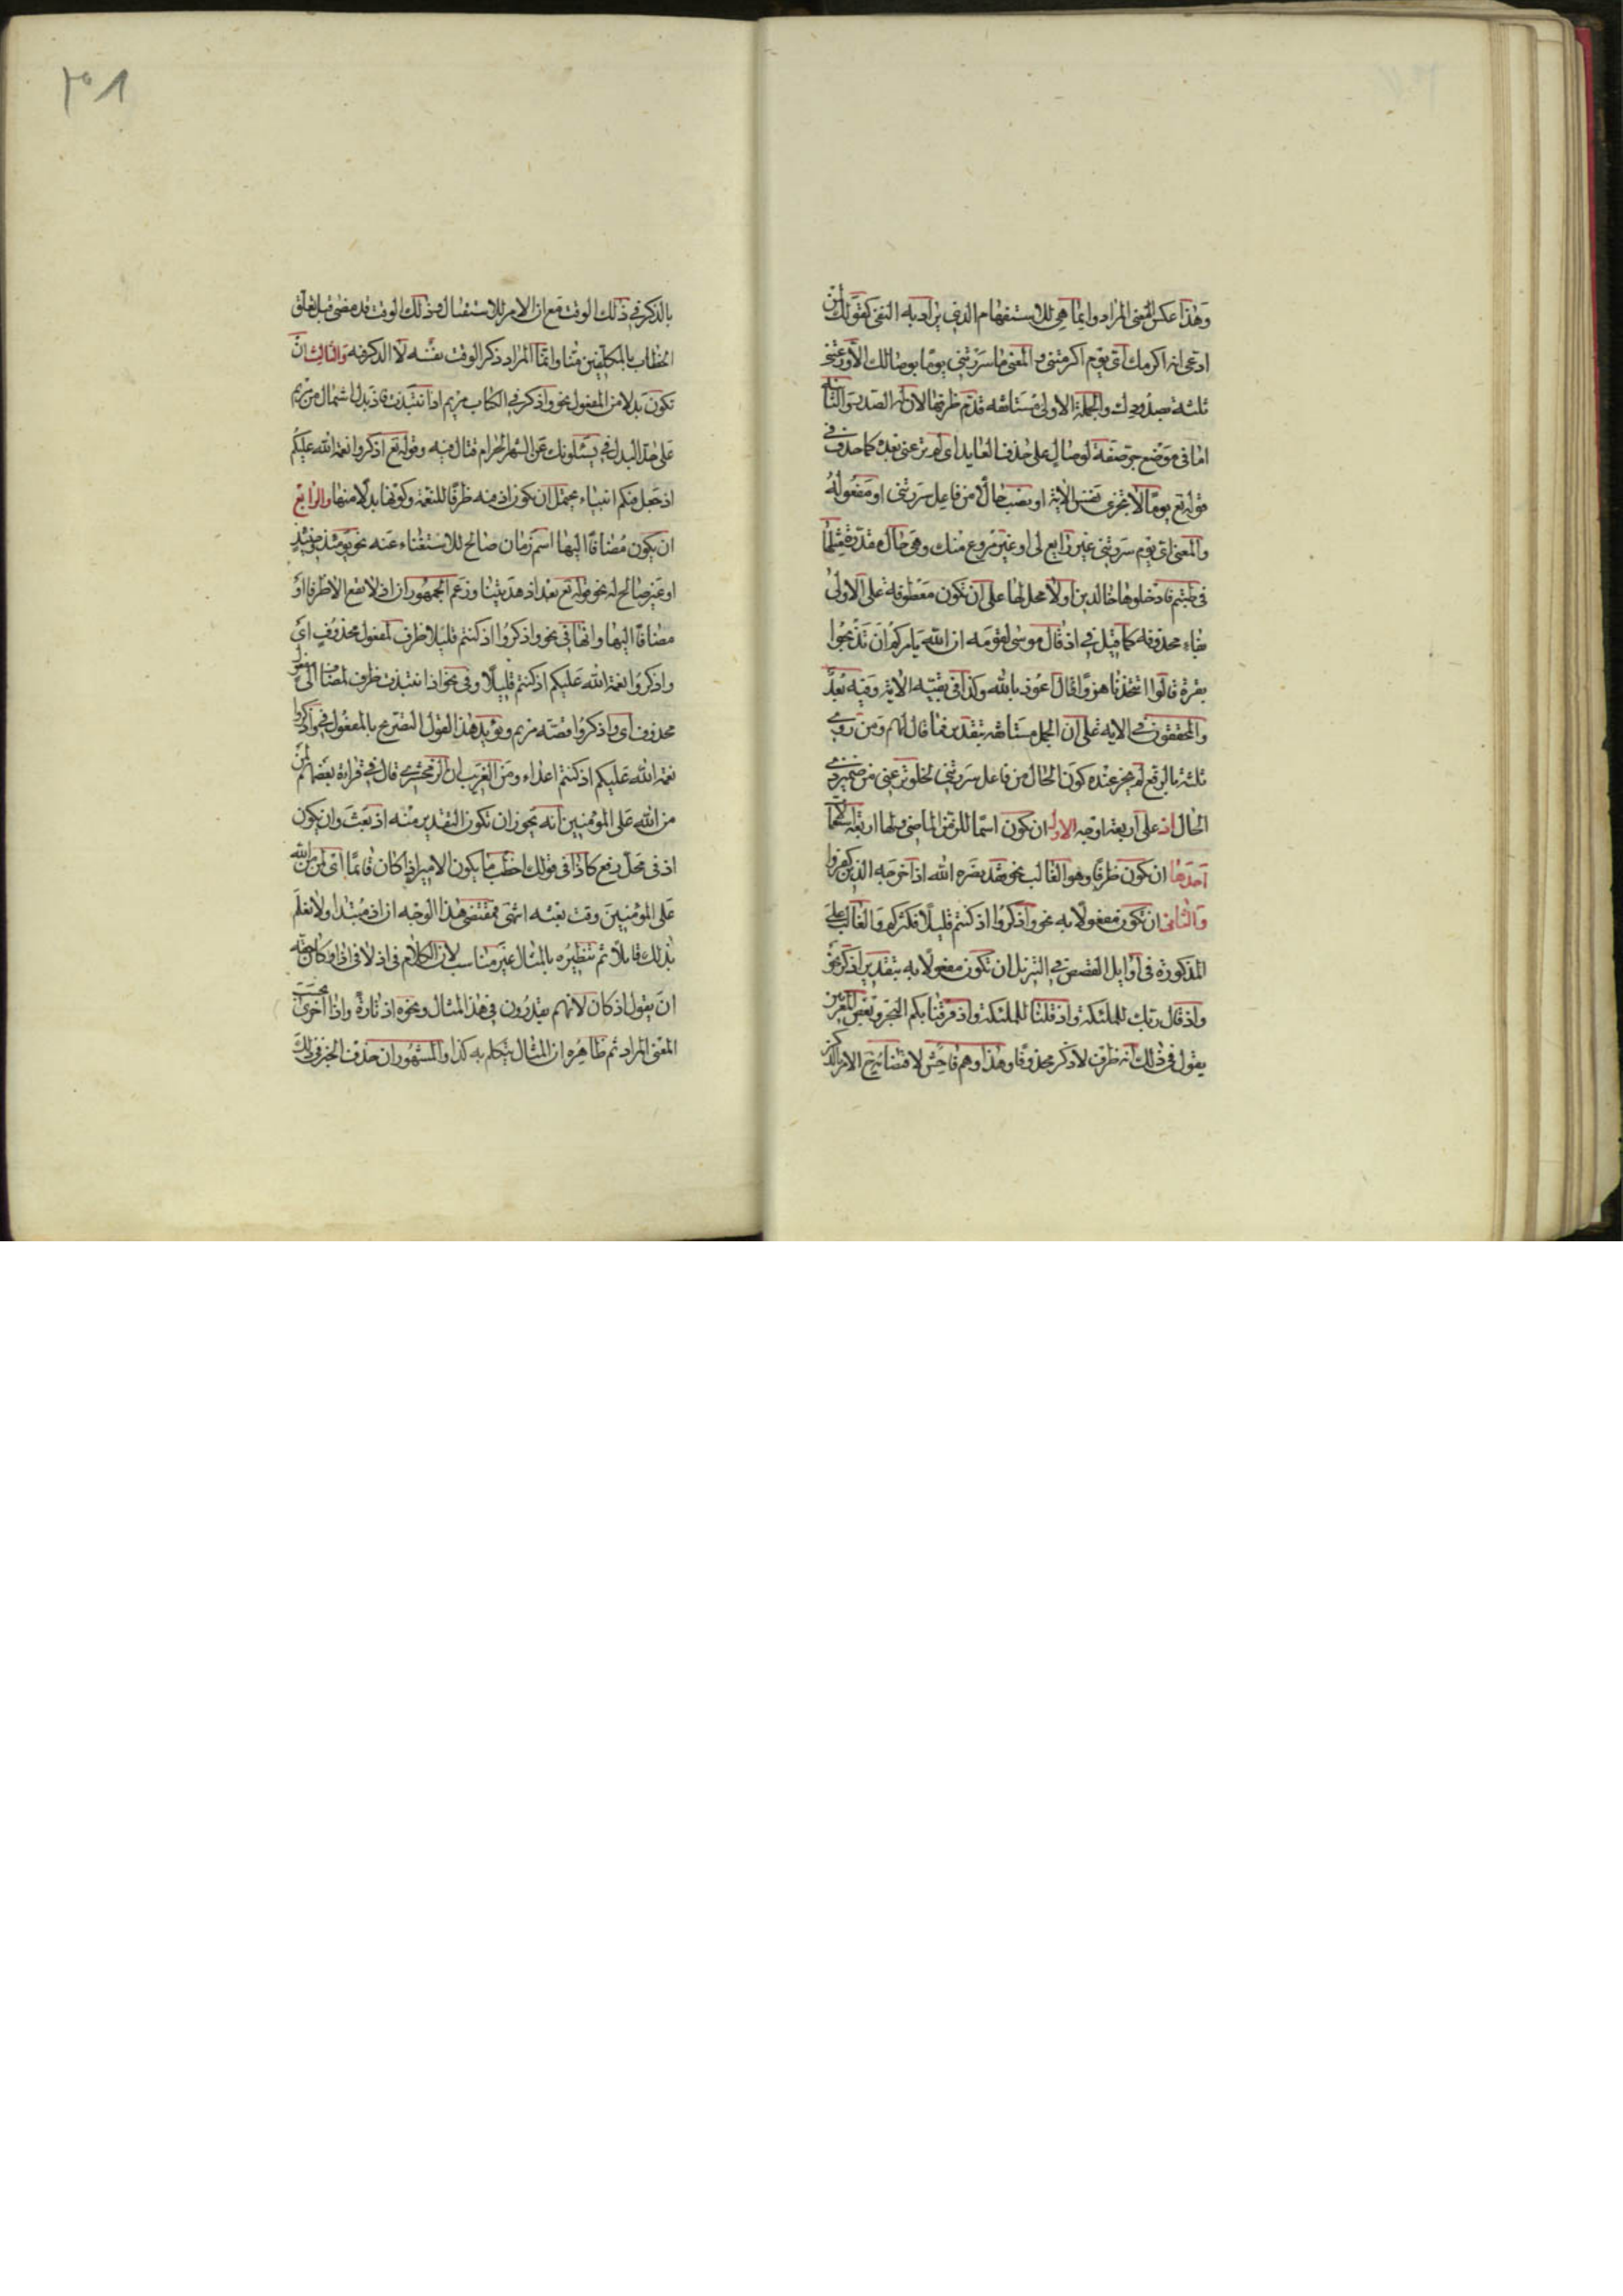 وهذا عكس المعنى المراد وانما هى للاستفهام الذى يراد به النفى كقولك لمن
ادعى انه اكرمك اى يوم اكرمتنى والمعنى ما سررتنى يوما بوصالك الا ورعتنى
ثلثة بصدودك والجملة الاولى مستانفه قدم ظرفها لان له الصدر والثانية
اما فى موضع جر صفة لوصال على حذف العايد اى لم ترعنى بعده كما حذف فى
قوله تع يوما لا تجزى نفس الاية او نصب حالا من فاعل سررتنى او مفعوله
والمعنى اى يوم سررتنى غير رايع لى او غير مروع منك وهى حال مقدرة مثلها
فى طبتم فادخلوها خالدين او لا محل لها على ان تكون معطوفة على الاولى
بفاء محذوفه كما قيل فى اذ قال موسى لقومه ان الله يامركم ان تذبحوا
بقرة قالوا اتتخذنا هزوا قال اعوذ بالله وكذا فى بقية الاية وفيه بعد
والمحققون فى الايه على ان الجمل مستانفه بتقدير فما قال لهم ومن روى
ثلثة بالرفع لم يجز عنده كون الحال من فاعل سررتنى لخلو ترعنى من ضمير ذى
الحال اذ على اربعة اوجه الاول ان يكون اسما للزمن الماضى ولها اربعة استعمالات
احدها ان تكون ظرفا وهو الغالب نحو فقد نصره الله اذ اخرجه الذين كفروا
والثانى ان تكون مفعولا به نحو واذكروا اذ كنتم قليلا فكثركم والغالب على
المذكورة فى اوايل القصص فى التنزيل ان تكون مفعولا به بتقدير اذكر نحو
واذ قال ربك للملئكة واذ قلنا للملئكة واذ فرقنا بكم البحر وبعض المعربين
يقول فى ذلك انه ظرف لاذكر محذوفا وهذا وهم فاحش لاقتضائه ح الامر بالذكر
٣٠١
بالذكر فى ذلك الوقت مع ان الامر للاستقبال وذلك الوقت قد مضى قبل تعلق
الخطاب بالمكلفين منا وانما المراد ذكر الوقت نفسه لا الذكر فيه والثالث ان
تكون بدلا من المفعول نحو واذكر فى الكتاب مريم اذ انتبذت فاذ بدل اشتمال من مريم
على حد البدل فى يسئلونك عن الشهر الحرام قتال فيه وقوله تع اذكروا نعمة الله عليكم
اذ جعل فيكم انبياء يحتمل ان تكون اذ فيه ظرفا للنعمة وكونها بدلا منها والرابع
ان يكون مضافا اليها اسم زمان صالح للاستغناء عنه نحو يومئذ وحينئذ
او غير صالح له نحو قوله تع بعد اذ هديتنا وزعم الجمهور ان اذ لا تقع الا ظرفا او
مضافا اليها وانها فى نحو واذكروا اذ كنتم قليلا ظرف لمفعول محذوف اى
واذكروا نعمة الله عليكم اذ كنتم قليلا وفى نحو اذ انتبذت ظرف لمضاف الى مفعول
محذوف اى واذكروا قصة مريم ويؤيد هذا القول التصريح بالمفعول فى واذكروا
نعمة الله عليكم اذ كنتم اعداء ومن الغريب ان الزمخشرى قال فى قراءة بعضهم لمن
من الله على المؤمنين انه يجوز ان تكون التقدير منه اذ بعث وان يكون
اذ فى محل رفع كاذا فى قولك اخطب ما يكون الامير اذا كان قائما اى لمن من الله
على المؤمنين وقت بعثه انتهى فمقتضى هذا الوجه ان اذ مبتدا ولا نعلم
بذلك قايلا ثم تنظيره بالمثال غير مناسب لان الكلام فى اذ لا فى اذا وكان حقه
ان يقول اذ كان لانهم يقدرون فى هذا المثال ونحوه اذ تارة واذا اخرى بحسب
المعنى المراد ثم ظاهره ان المثال يتكلم به كذا والمشهور ان حذف الخبر فى ذلك